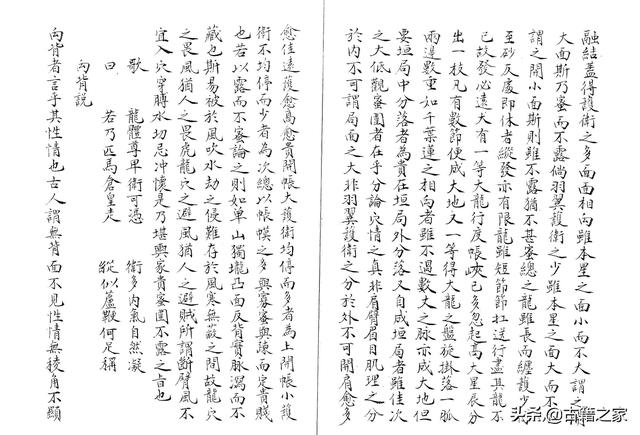 融結蓋得護衛之多面面相向雖本星之面小而不大謂之開
大面斯乃蜜而不露倘羽翼護衛之少雖本星之面大而不
謂之開小面斯則雖不露猶不甚蜜總之龍雖長而纏護少
至砂反處即休者縱發亦有限龍雖短節節扛送行盡其龍不
已故發必遠大有一等大龍行度帳峽已多忽起高大星辰分
出一枝凡有數節便成大地又一等得大龍之盤旋掛落一脈
兩邊數重如千葉蓮之相向者雖不過數丈之脉亦成大地但
要垣局中分落者為貴在垣局外分落又自成垣局者雖佳次
之大低觀蜜圍者在乎分論穴情之真非肩臂眉目肌理之分
於內不可謂局面之大非羽翼護衛之分於外不可開肩愈多
愈佳遠護愈高愈貴開帳大護衛均停而多者為上開帳小護
衛不均停而少者為次總以帳幙之多與寡蜜與疎而定貴賤
也若以露而不蜜論之則如單山獨壠凸面反背實脉瀉而不
藏也斯易被於風吹水劫之侵難存於風寒無蔽之間故龍穴
之畏風猶人之畏虎龍穴之避風猶人之避賊所謂斷臂風不
宜入穴穿膊水切忌沖懷是乃堪輿家貴蜜圍不露之吉也
歌 龍體尊卑衛可憑 衛多內氣自然凝
曰 若乃匹馬倉皇走 縱似蘆鞭何足稱
向背說
向背者言乎其性情也古人謂無背面不見性情無稜角不顯
头条 @古籍之家